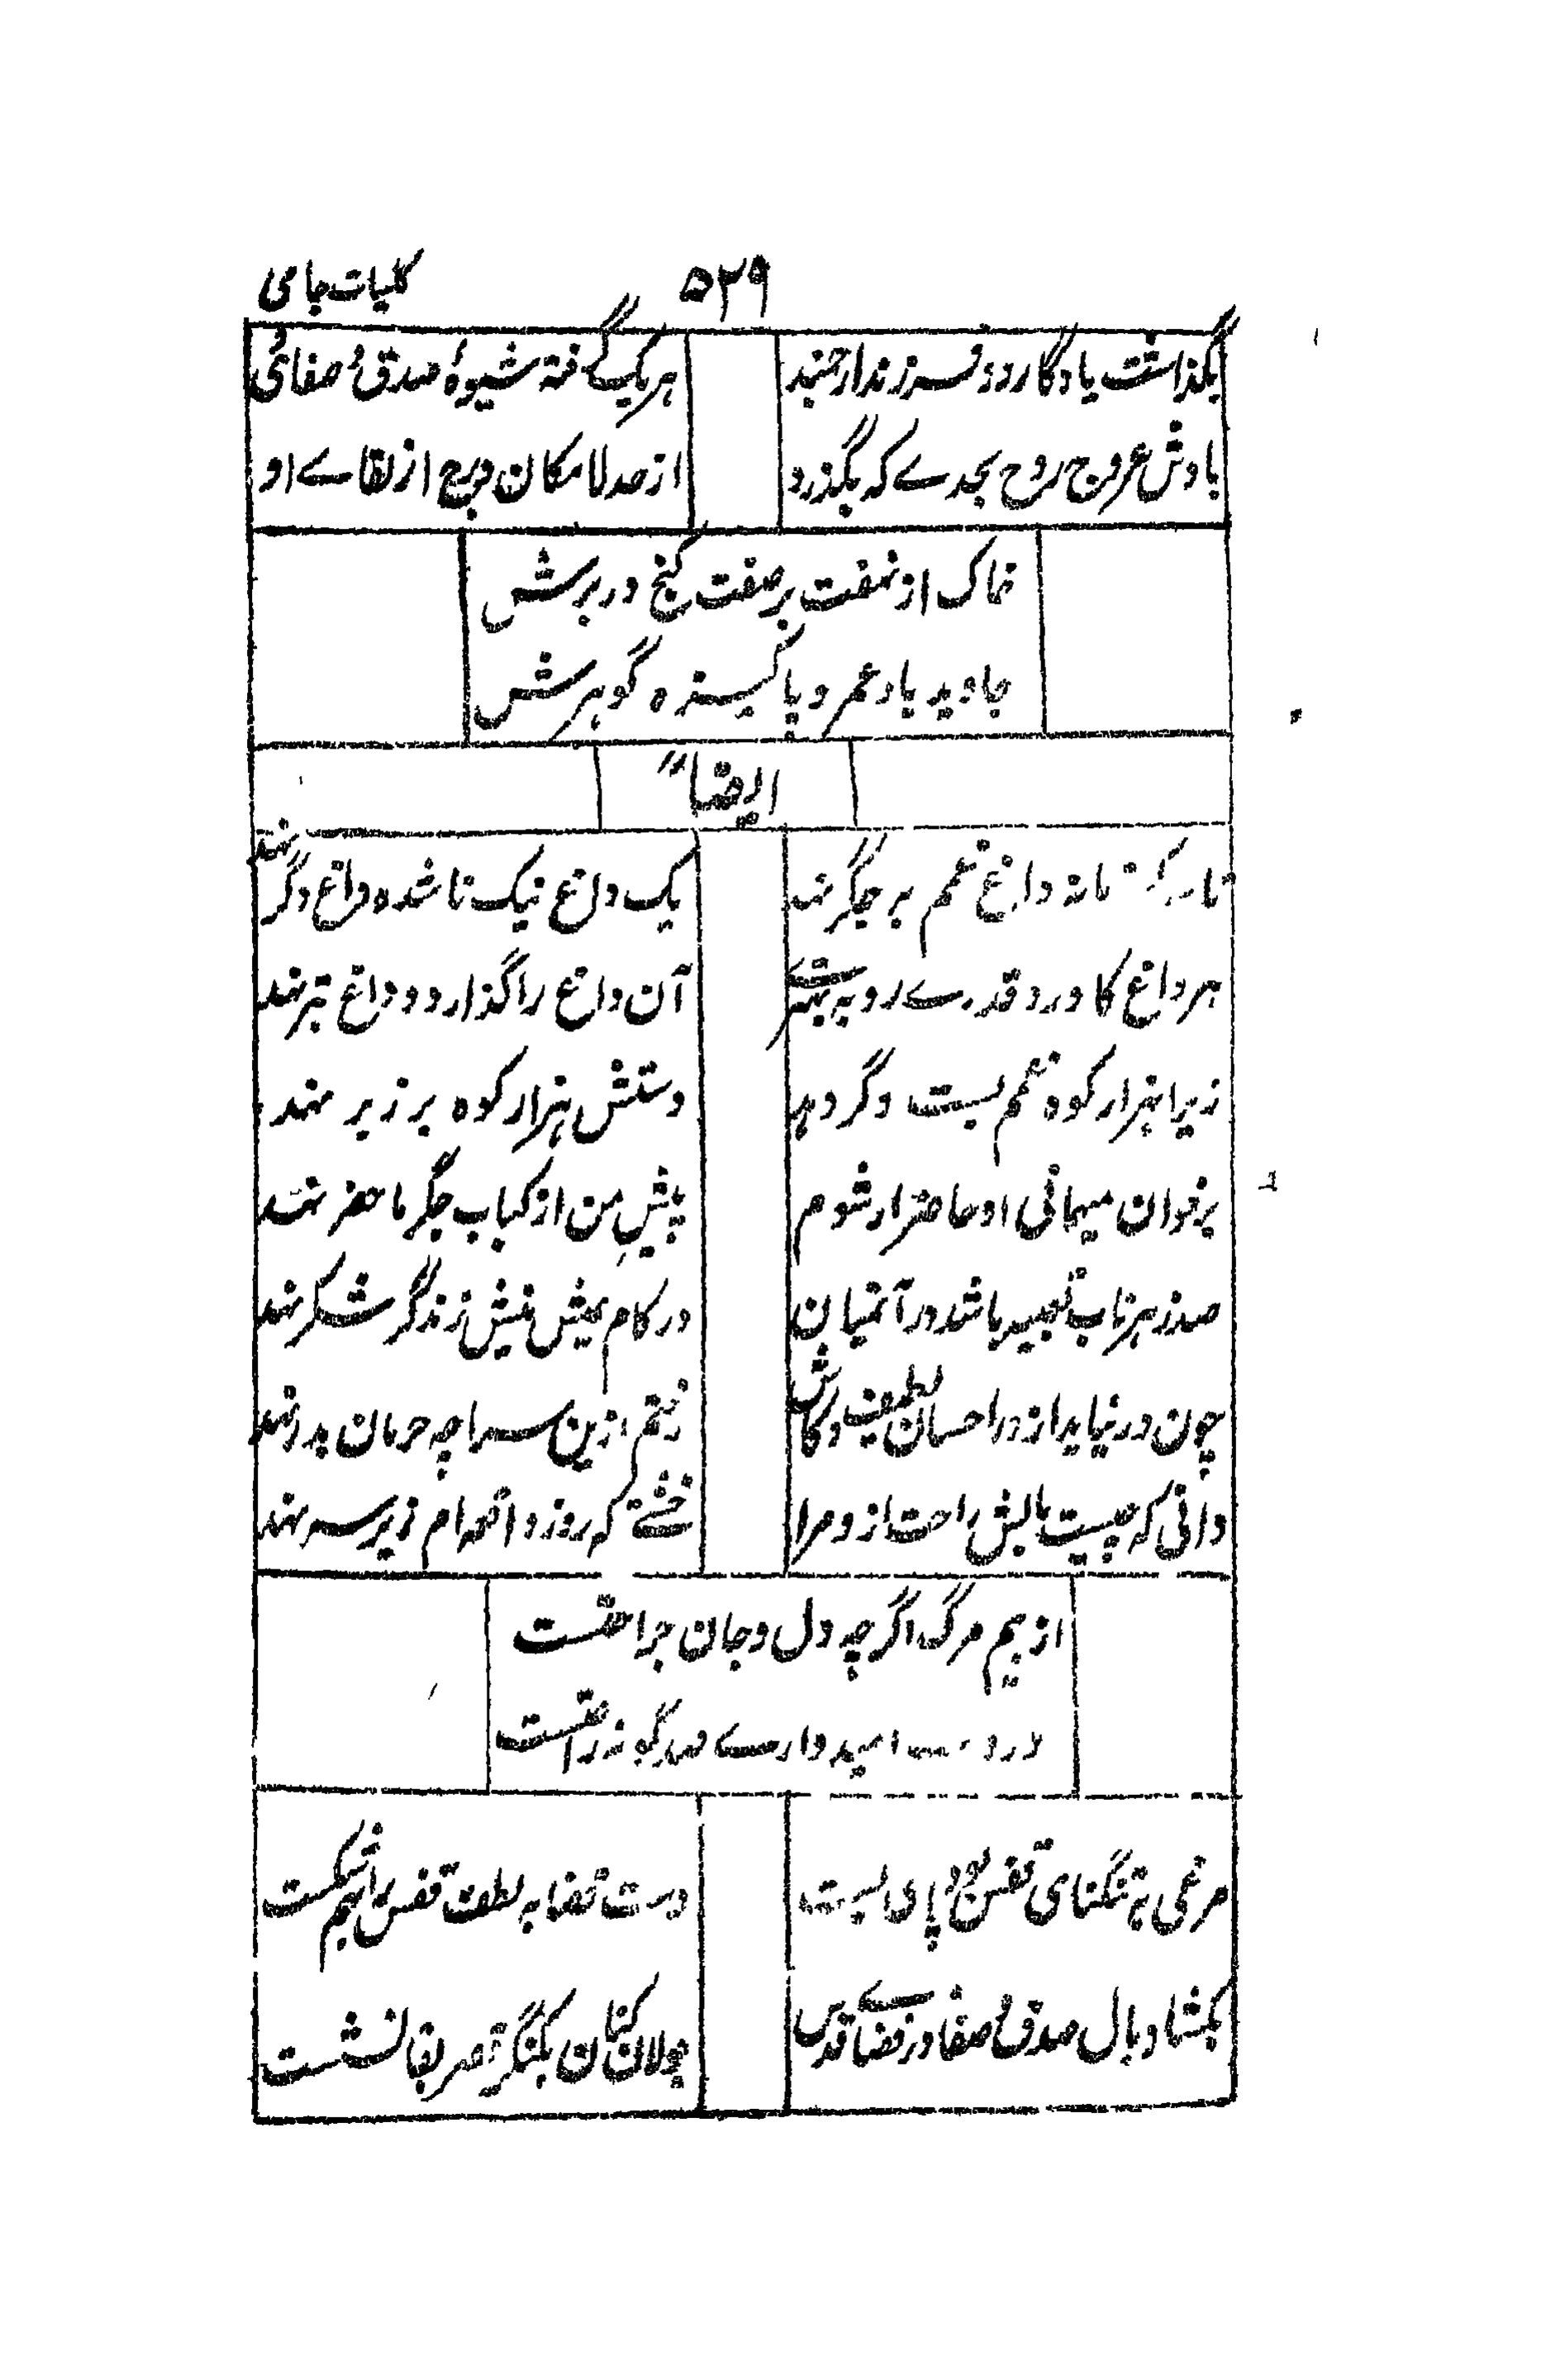 ۵۲۹
کلیات جامی
بگذاشت یادگار دو فرزند ارجمند
هر یک گرفته شیوهٔ صدق و صفائی
بادش عروج روح بحدے که بگذرد
از حد لامکان از لقاے او
خاک از نهفت بر صفت گنج در برش
جاوید باد عمر دو پاکیزه گوهرش
ایضاً
زمانه داغ غمم بر جگر نهد
یک داغ نیک ناشده داغ دگر نهد
هر داغ کاورد قدرے رو به بهتری
آن داغ را گذارد و داغ بتر نهد
زیر هزار کوه غمم پست وگر دهد
دستش هزار کوه بر زبر نهد
بر خوان میهمانی او حاضر ار شوم
پیش من از کباب جگر ماحضر نهد
صد زهر ناب تعبیه باشد در آنمیان
در کام عیش نیش زند گر شکر نهد
چون در نیاید از در احسان لطیف و کاش
رختم ازین سراچه حرمان بدر نهد
دانی که چیست بالش راحت ازو مرا
خشتے که روز واقعه ام زیر سر نهد
از بیم مرگ اگرچه دل و جان جراحتست
در وے امیدوارے صد گونه راحتست
مرغی به تنگنای قفس بود پای بست
دست قضا به لطف قفس را بهم شکست
بکشاد بال صدق و صفا در فضاے قدس
جولان کنان بکنگر قصر بقا نشست